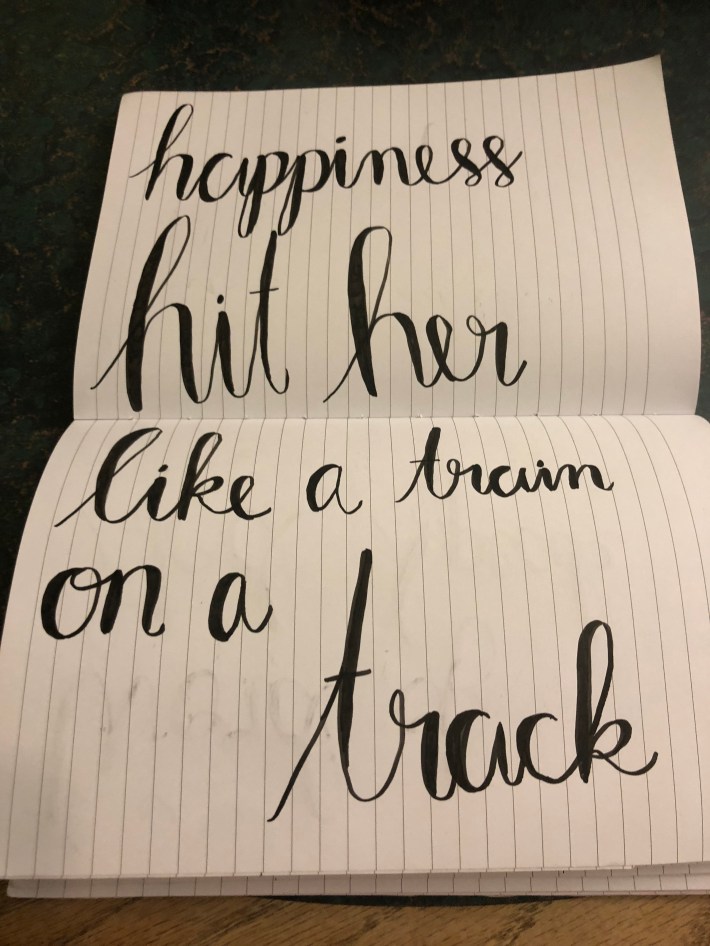 happiness
hit her
like a train
on a
track